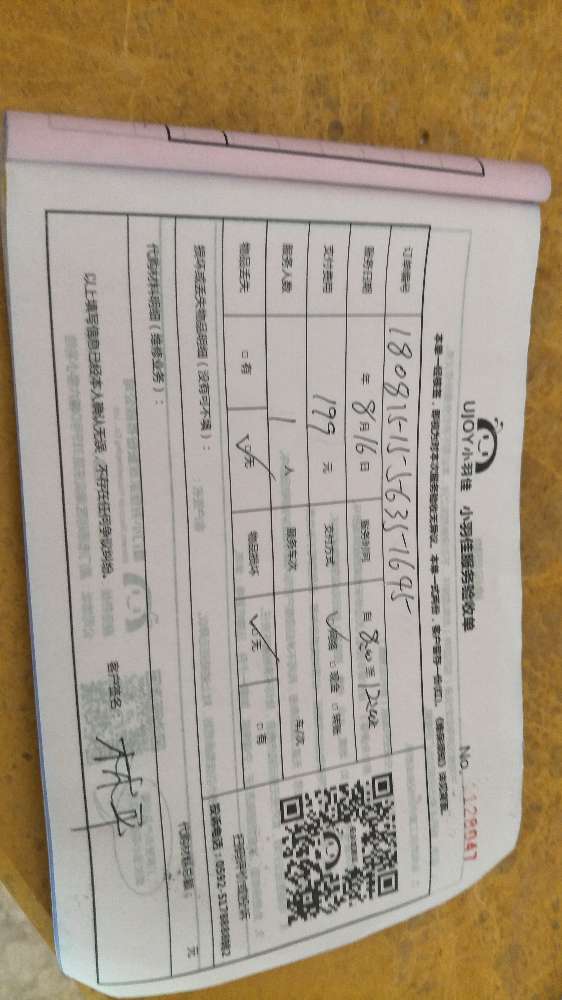 UJOY小羽佳 小羽佳服务验收单
No. 1128047
本单一经签署，即视为对本次服务验收无异议。本单一式两份，客户留存一份(红)。
订单编号 180815-15-5635-1645
服务日期 年 8月16日 服务时间 自 8:00 至 12:00
支付费用 199 元 支付方式 网络 □现金 □转账
服务人数 1 人 服务车次 车/次
物品丢失 □有 ☑无 物品损坏 ☑无 □有
损坏或丢失物品明细（没有可不填）：
投诉电话：0592-5178888转82
代购材料明细（维修业务）：
代购材料总额： 元
以上填写信息已经本人确认无误，不存在任何争议纠纷。
客户签名：